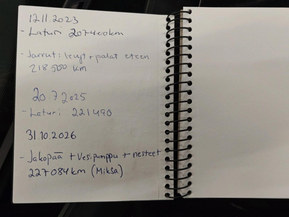 17.11.2023
- Latur: 207400km
- Jarrut: levyt + palat eteen
218 500 km
20.7.2025
- Latur: 221490
31.10.2026
- Jakopää + Vesipumppu + nesteet
227084km (Miksa)